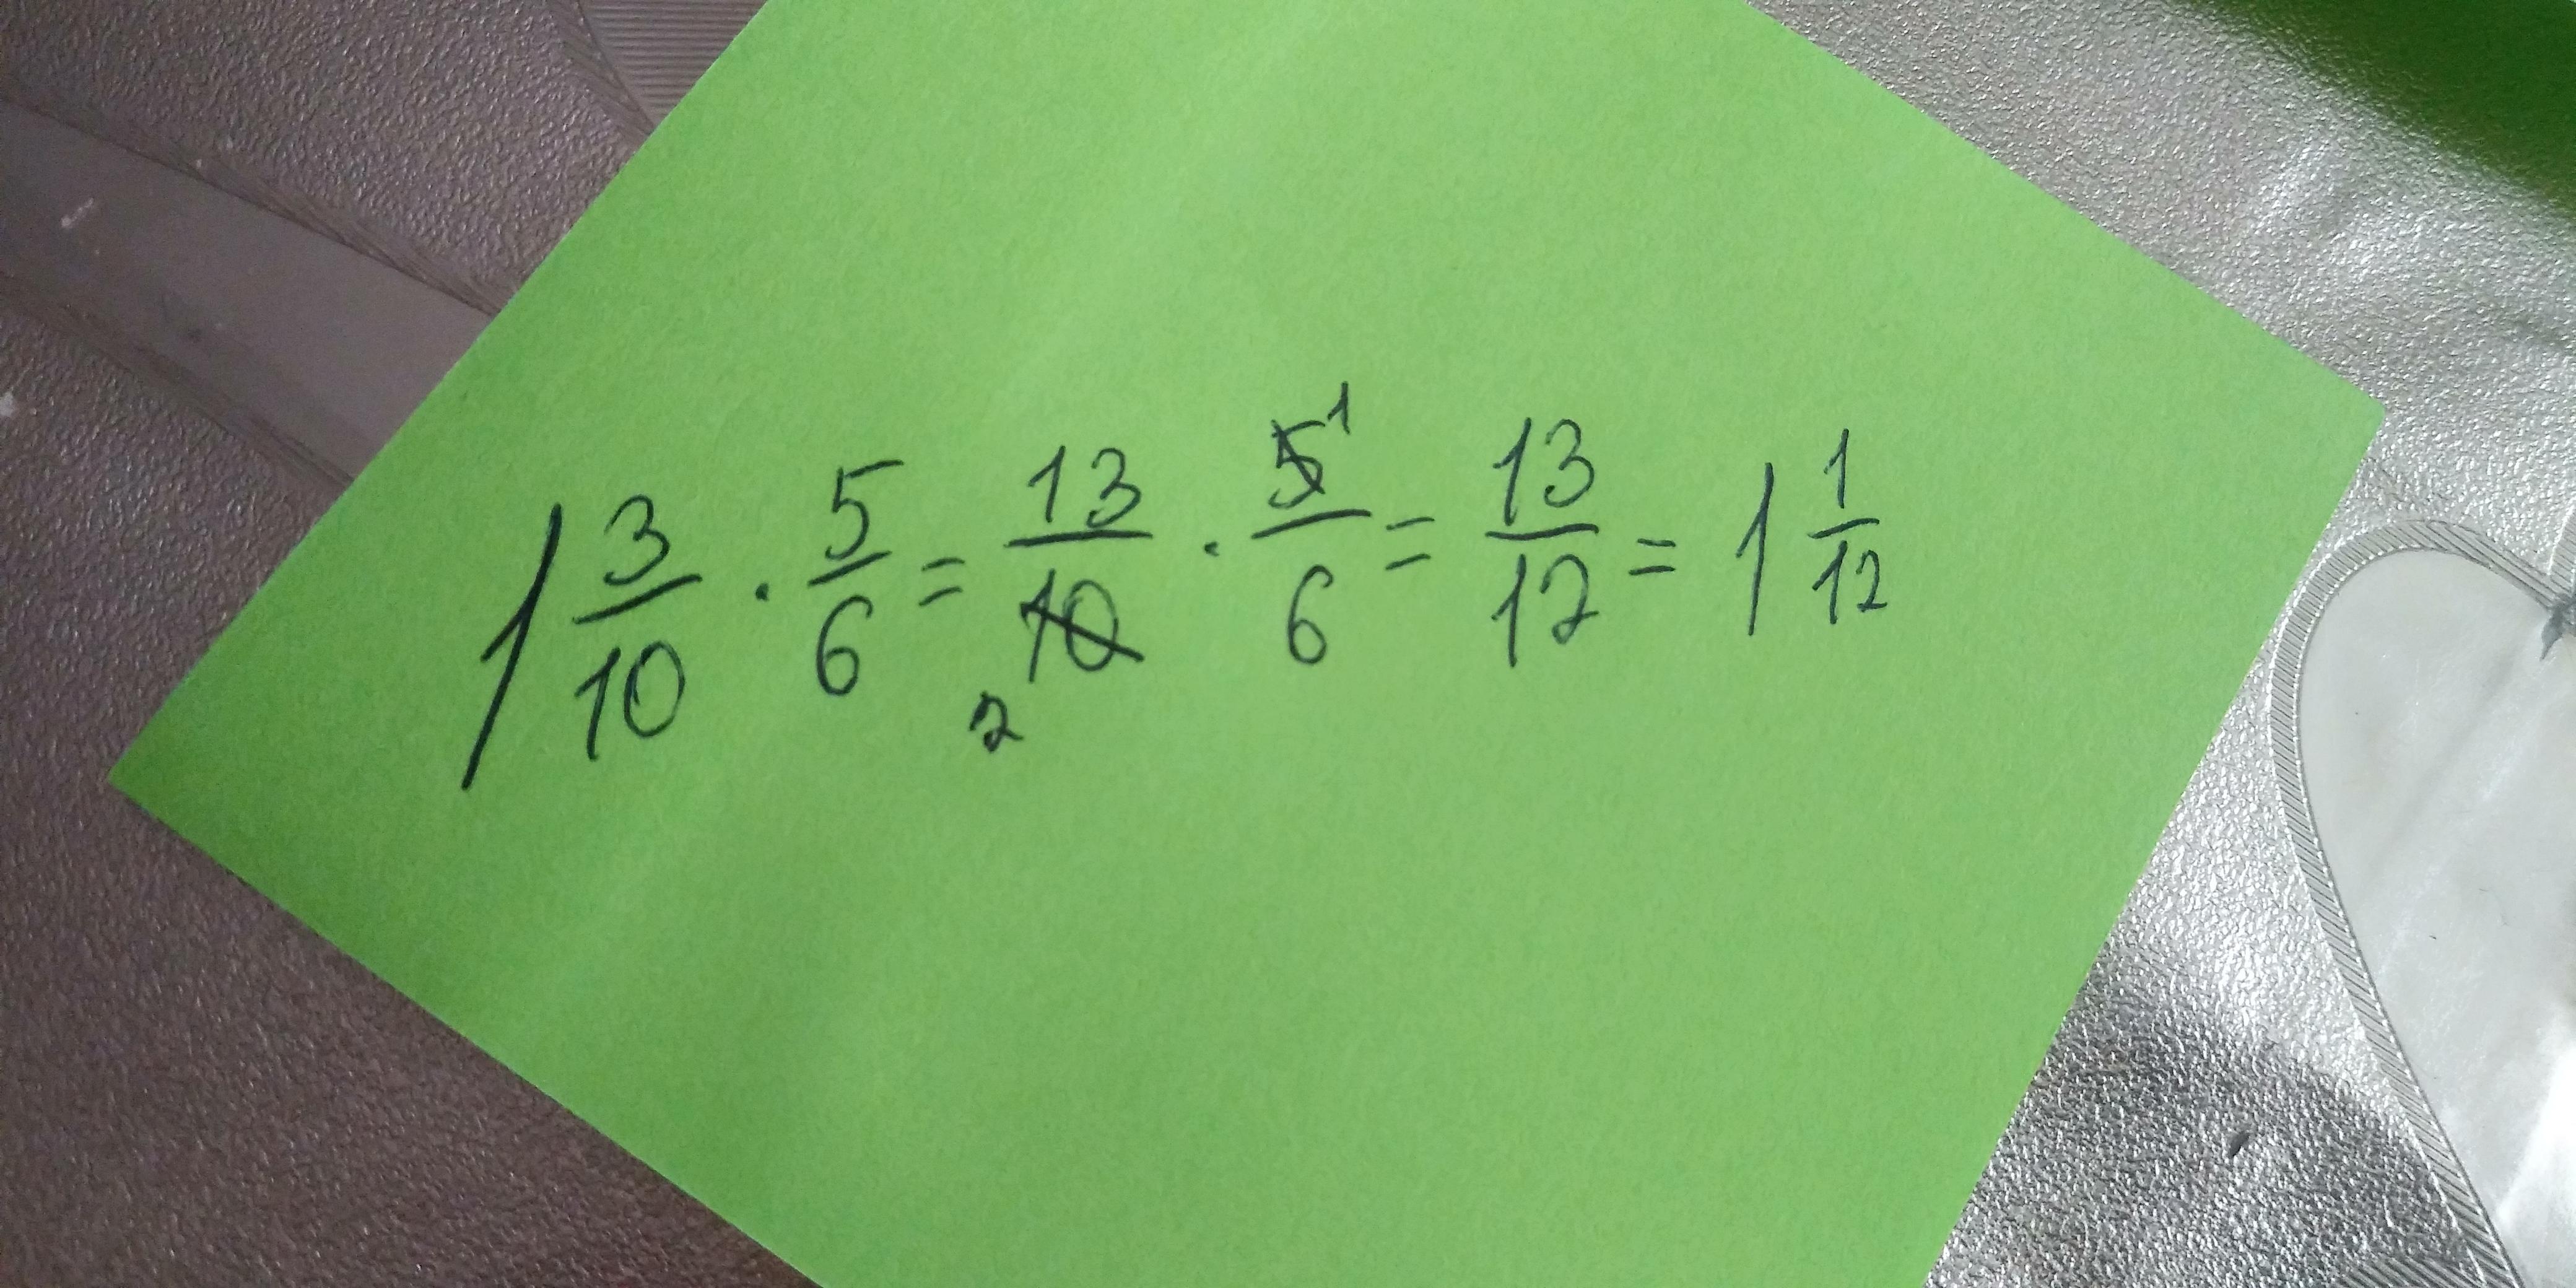 1 3/10 · 5/6 = 13/10 2 · 5/6 1 = 13/12 = 1 1/12